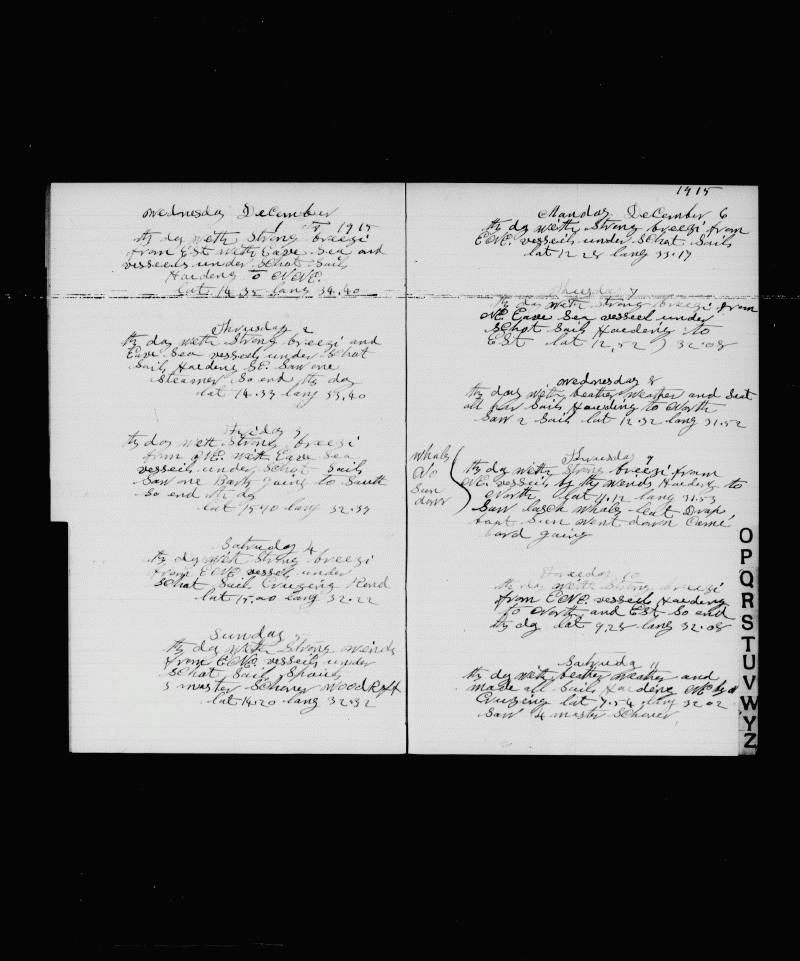 Wednesday December
1 1915
this day with Strong breezi
from Est with Eave Sea and
vesseils under Schat Sails
Haeding to ENE.
lat 14.35 lang 34.40
Thursday 2
this day with Strong breezi and
Eave Sea vesseils under Schat
Sails Haeding SE. Saw one
Steamer So end this day
lat 14.39 lang 33,40
Friday 3
this day with Strong breezi
from NE. with Eave Sea
vesseils under Schot Sails
Saw one Bark going to South
So end this day
lat 15.10 lang 32.39
Saturday 4
this day with Strong breezi
from ENE vesseil under
Schat Sail Cruzeing
lat 15.00 lang 32.22
Sunday 5
this day with Strong winds
from ENE. vesseils under
Schat Sail
3 master Schoner
lat 14.20 lang 32.32
1915
Manday December 6
this day with Strong breezi from
ENE. vesseils under Schat Sails
lat 12 28 lang 33.17
7
this day with Strong breezi from
NE. Eave Sea vesseil under
Schot Sail Haeding to
Est lat 12,52 32.08
Wednesday 8
this day with beather Weather and Seat
all Sails Haeding to North
Saw 2 Sails lat 12.32 lang 31.52
Whales
No
Sun
down
Thursday 9
this day with Strong breezi from
NE. vesseils by the Winds Haeding to
North, lat 11.12 lang 31.53
Saw Whales
Sun went down Came,
bord
10
this day with Strong breezi
from ENE. vesseils Haeding
to North and Est So end
this dg lat 9,28 lang 32.08
Saturday 11
this day with beather Weather and
made all Sails Haeding
Cruzing lat 9.54 lang 32 02
Saw 4 master Schoner,
O
P
Q
R
S
T
U
V
W
Y
Z